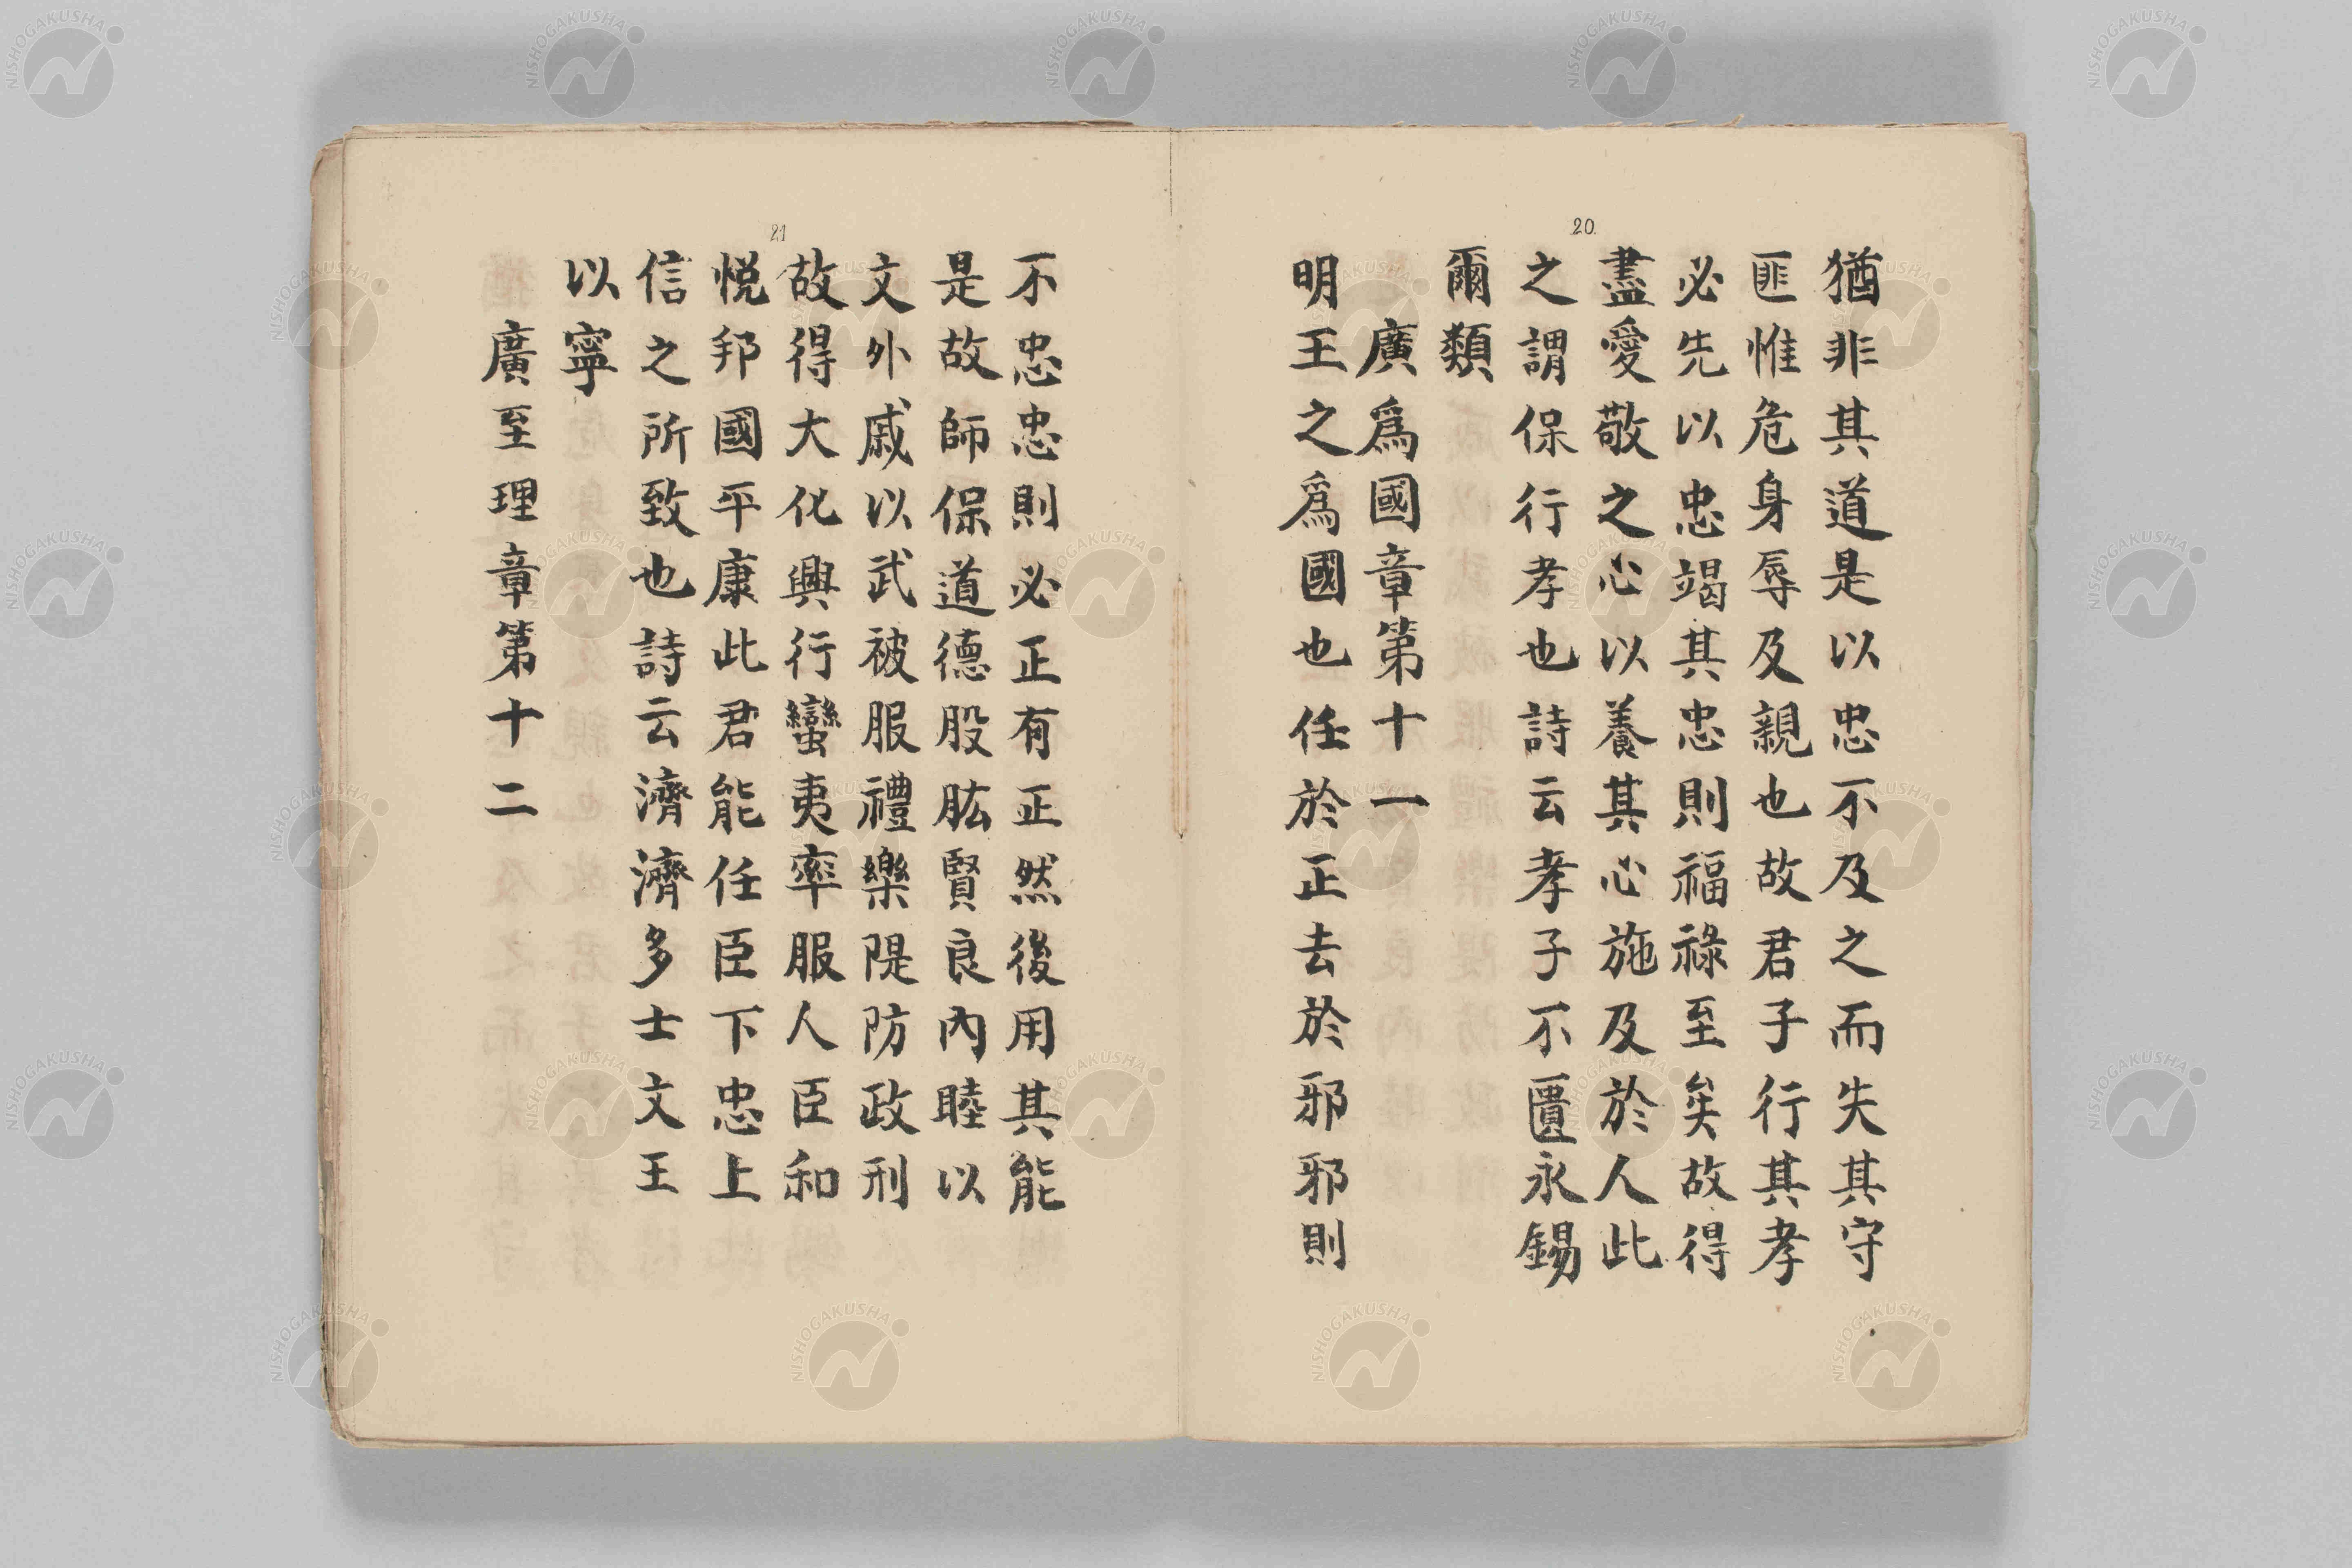 20
猶非其道是以忠不及之而失其守
匪惟危身辱及親也故君子行其孝
必先以忠竭其忠則福祿至矣故得
盡愛敬之心以養其心施及於人此
之謂保行孝也詩云孝子不匱永錫
爾類
廣爲國章第十一
明王之爲國也任於正去於邪邪則
21
不忠忠則必正有正然後用其能
是故師保道德股肱賢良內睦以
文外戚以武被服禮樂隄防政刑
故得大化興行蠻夷率服人臣和
悦邦國平康此君能任臣下忠上
信之所致也詩云濟濟多士文王
以寧
廣至理章第十二
NISHOGAKUSHA